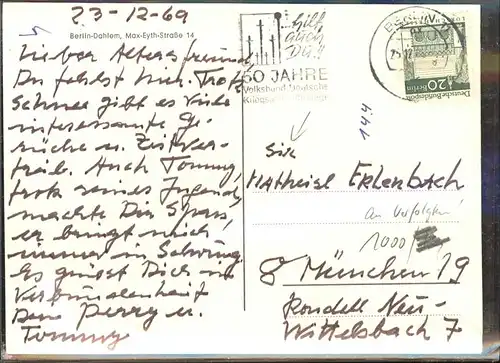 23-12-69
Berlin-Dahlem, Max-Eyth-Straße 14
Lieber Altersfreund
Du fehlst hier. Trotz
Schnee gibt es viele
interessante Ge-
rüche u. Zeitver-
treib. Auch Tommy,
trotz seines Jugend,
machte Dir Spass,
er bringt mich
immer in Schwung.
Es grüsst Dich in
Verbundenheit
Dein Perry u.
Tommy
hilf
auch
Du!!
50 JAHRE
Volksbund Deutsche
BERLIN
Deutsche Bundespost
Berlin
20
144
Matheisl Erlenbach
1000
8 München 19
Rondell Neu-
Wittelsbach 7